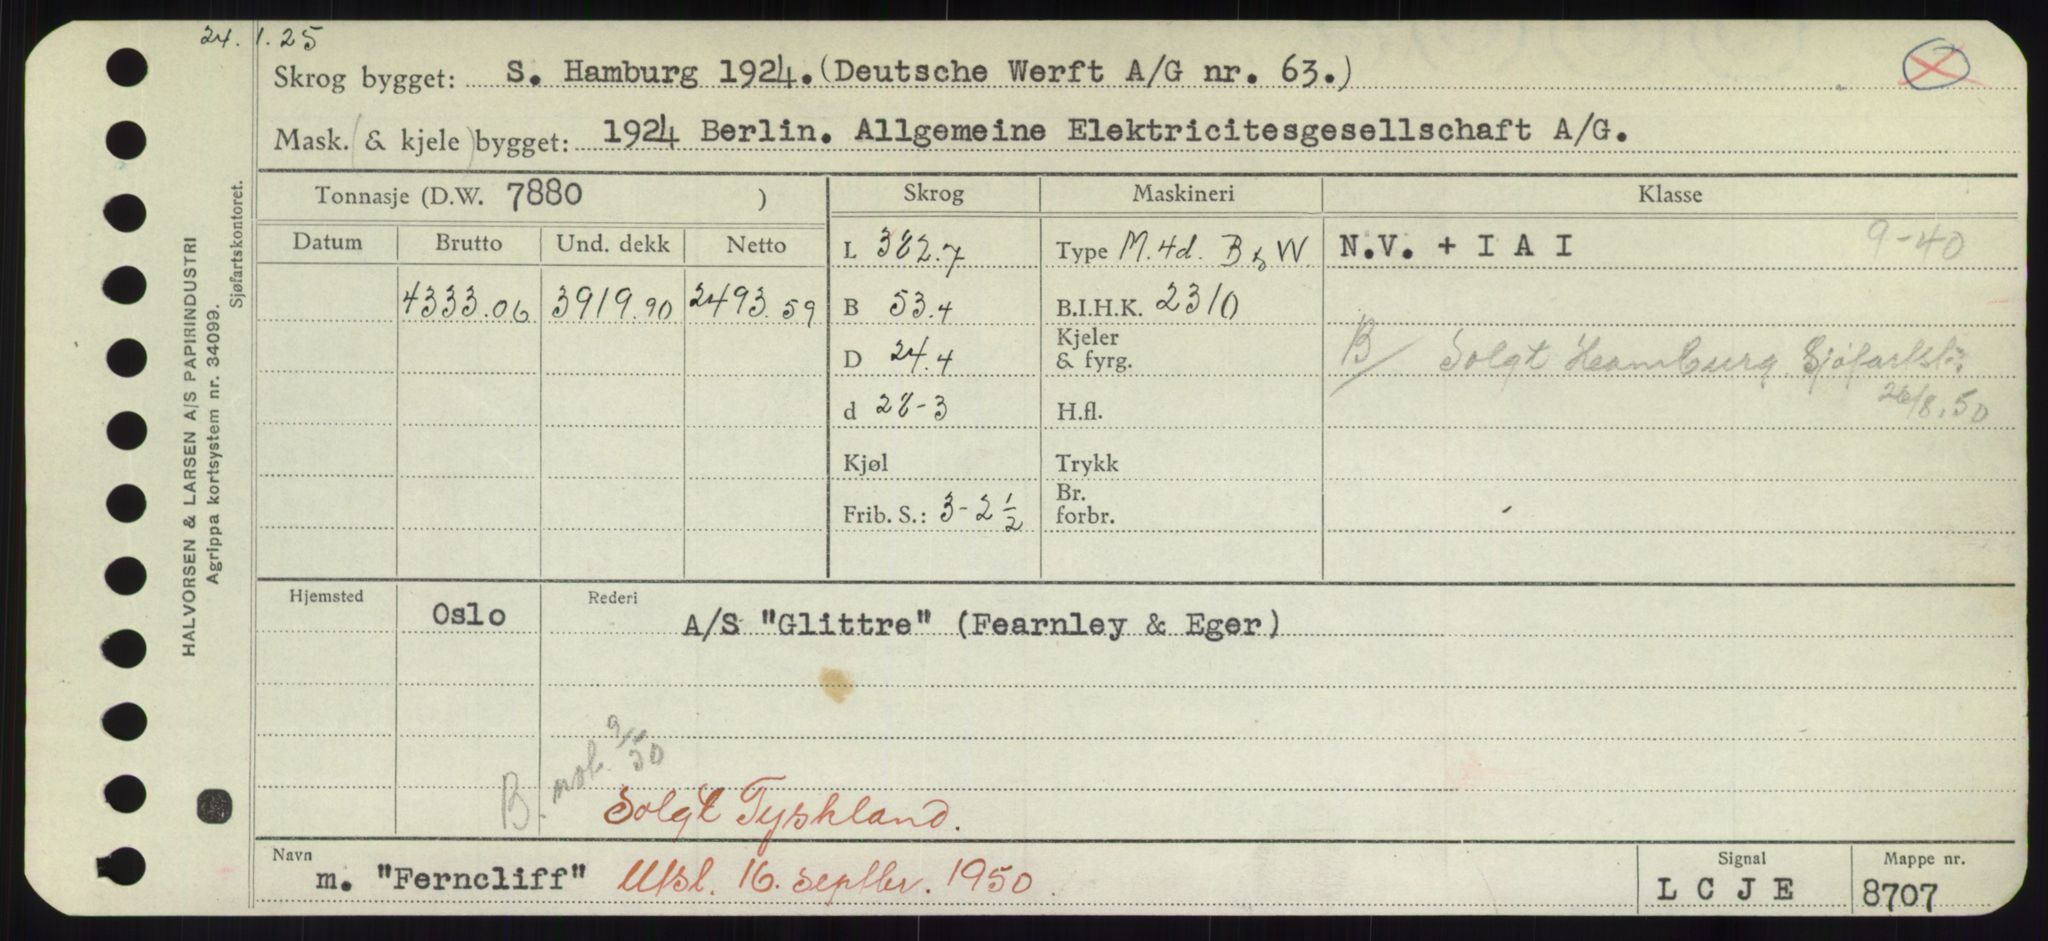 24. 1. 25
Skrog bygget: S. Hamburg 1924. (Deutsche Werft A/G nr. 63.)
Mask. (& kjele) bygget: 1924 Berlin. Allgemeine Elektricitesgesellschaft A/G.
Tonnasje (D.W. 7880 ) Skrog Maskineri Klasse
Datum Brutto Und. dekk Netto L 382.7 Type M. 4d. B & W. N.V. + I A I 9-40
4333.06 3919.90 2493.59 B 53.4 B.I.H.K. 2310
D 24.4 Kjeler & fyrg. B/ Solgt Hamburg Sjøfartst:
d 28-3 H.fl. 26/8.50
Kjøl Trykk
Frib. S.: 3-2 1/2 Br. forbr.
Hjemsted Oslo Rederi A/S "Glittre" (Fearnley & Eger)
B. not. 9/50
Solgt Tyskland.
Navn m. "Ferncliff" Utsl. 16. septbr. 1950. Signal L C J E Mappe nr. 8707
HALVORSEN & LARSEN A/S PAPIRINDUSTRI
Agrippa kortsystem nr. 34099.
Sjøfartskontoret.